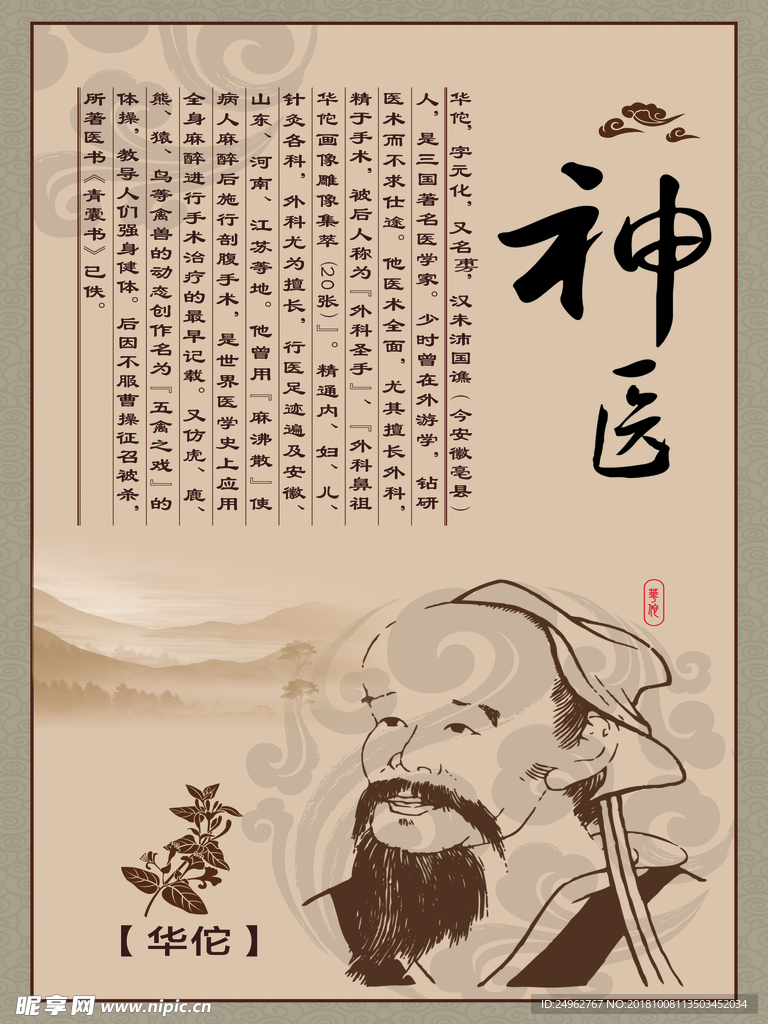 神医
华佗，字元化，又名旉，汉末沛国谯（今安徽亳县）
人，是三国著名医学家。少时曾在外游学，钻研
医术而不求仕途。他医术全面，尤其擅长外科，
精于手术，被后人称为『外科圣手』、『外科鼻祖
华佗画像雕像集萃（20张）』。精通内、妇、儿、
针灸各科，外科尤为擅长，行医足迹遍及安徽、
山东、河南、江苏等地。他曾用『麻沸散』使
病人麻醉后施行剖腹手术，是世界医学史上应用
全身麻醉进行手术治疗的最早记载。又仿虎、鹿、
熊、猿、鸟等禽兽的动态创作名为『五禽之戏』的
体操，教导人们强身健体。后因不服曹操征召被杀，
所著医书《青囊书》已佚。
華佗
【华佗】
昵享网 www.nipic.cn
ID:24962767 NO:20181008113503452034